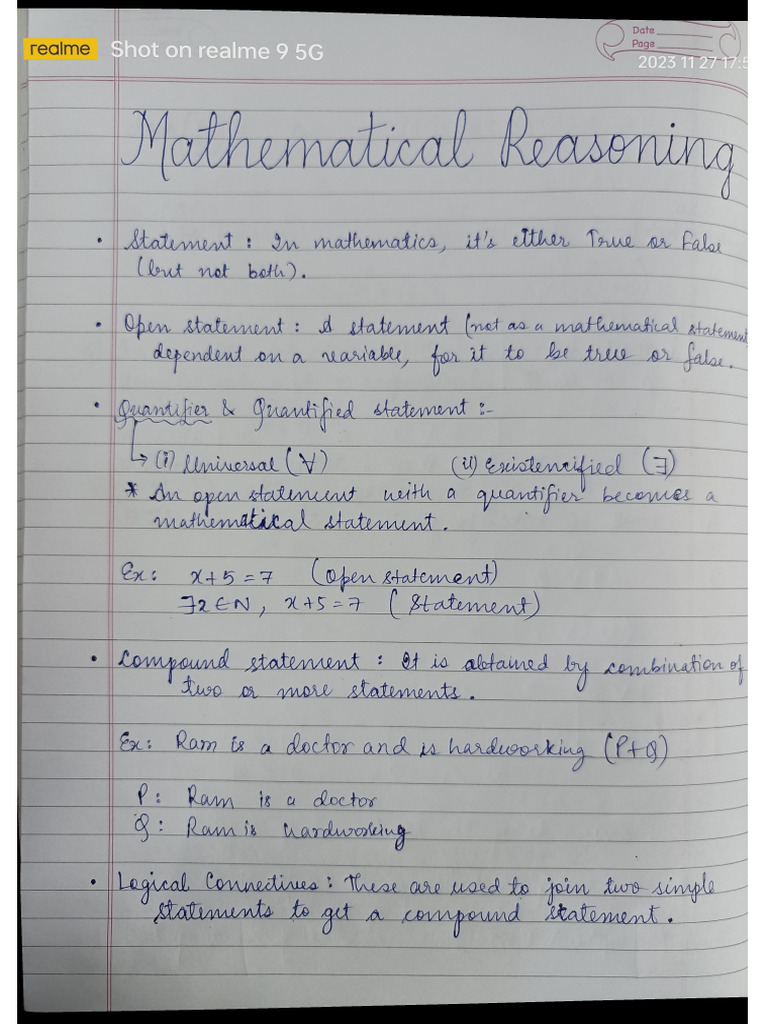 realme Shot on realme 9 5G
Date
Page
2023 11 27 17:5
Mathematical Reasoning
• Statement : In mathematics, it's either True or False
(but not both).
• Open statement : A statement (not as a mathematical statement
dependent on a variable, for it to be true or false.
• Quantifier & Quantified statement :-
↳ (i) Universal (∀) (ii) Existencified (∃)
* An open statement with a quantifier becomes a
mathematical statement.
Ex: x+5=7 (Open statement)
∃x∈N, x+5=7 (Statement)
• Compound statement : It is obtained by combination of
two or more statements.
Ex: Ram is a doctor and is hardworking (P+Q)
P: Ram is a doctor
Q: Ram is hardworking
• Logical Connectives : These are used to join two simple
statements to get a compound statement.